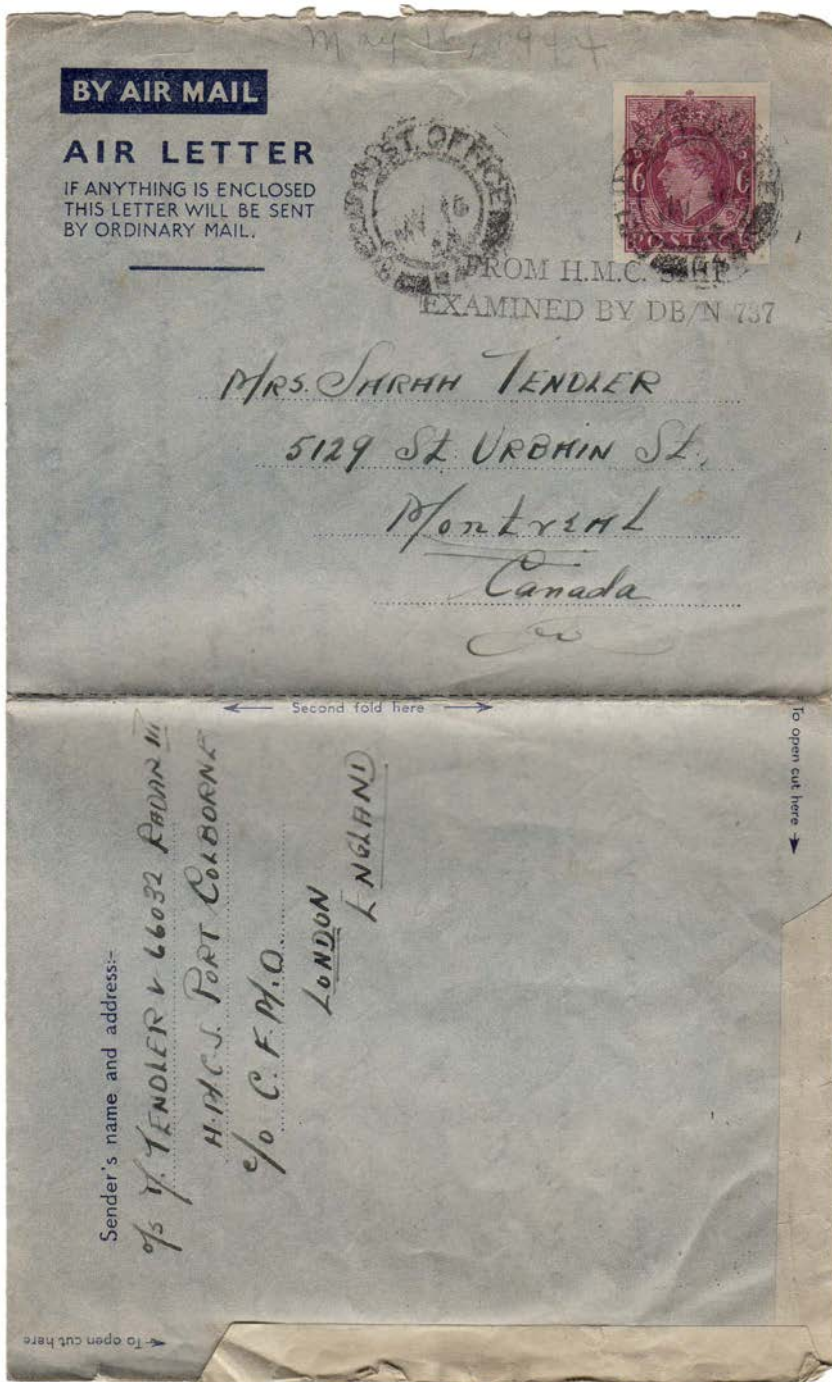 May 16, 1944
BY AIR MAIL
AIR LETTER
IF ANYTHING IS ENCLOSED
THIS LETTER WILL BE SENT
BY ORDINARY MAIL.
POST OFFICE
6 6
POSTAGE
FROM H.M.C. SHIP
EXAMINED BY DB/N 737
MRS. SARAH TENDLER
5129 St. URBAIN St.,
MontreAL
Canada
Second fold here
To open cut here
Sender's name and address:-
O/S M. TENDLER V 66032 RADAR III
H.M.C.S. PORT COLBORNE
c/o C.F.M.O.
LONDON
ENGLAND
To open cut here